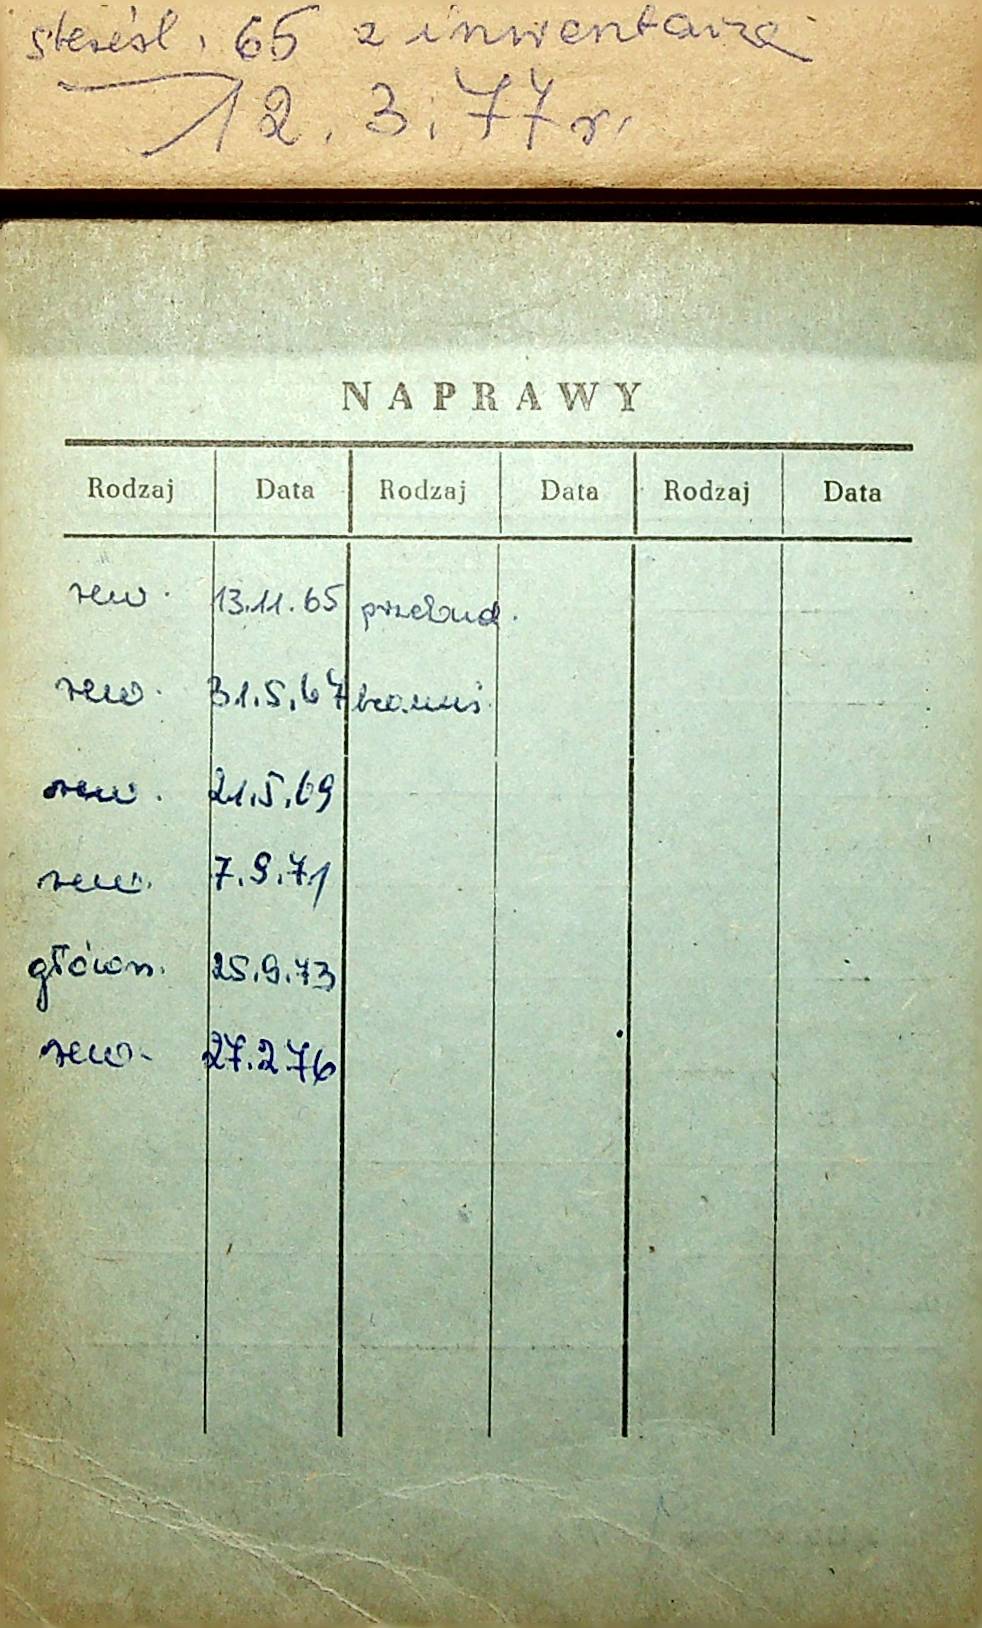 skreśl. 65 z inwentarza
12.3.77r.
NAPRAWY
Rodzaj Data Rodzaj Data Rodzaj Data
rew. 13.11.65 przebud.
rew. 31.5.67
rew. 21.5.69
rew. 7.9.71
główn. 25.9.73
rew. 27.2.76